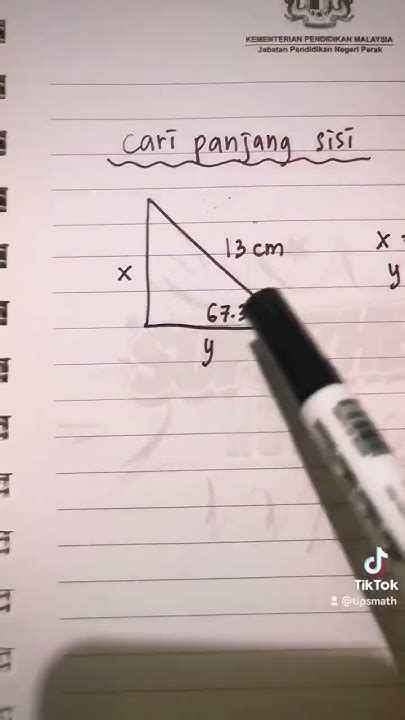 KEMENTERIAN PENDIDIKAN MALAYSIA
Jabatan Pendidikan Negeri Perak
cari panjang sisi
13 cm
x =
x
y
67.3
y
TikTok
@tipsmath